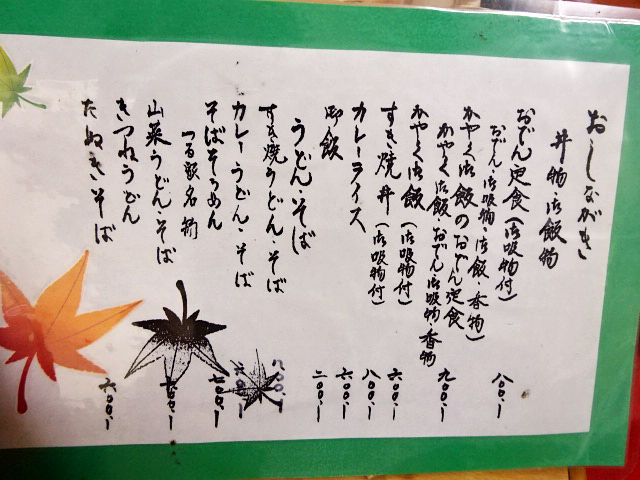 おしながき
丼物・御飯物
おでん定食(御吸物付)
おでん・御吸物・御飯・香物
八〇〇、ー
かやく御飯のおでん定食
かやく御飯 おでん・御吸物・香物
九〇〇、ー
かやく御飯(御吸物付)
六〇〇、ー
すき焼丼(御吸物付)
八〇〇、ー
カレーライス
六〇〇、ー
御飯
二〇〇、ー
うどん・そば
すき焼うどん・そば
八〇〇、ー
カレーうどん・そば
そばそうめん
七〇〇、ー
山菜うどん・そば
きつねうどん
たぬきそば
六〇〇、ー